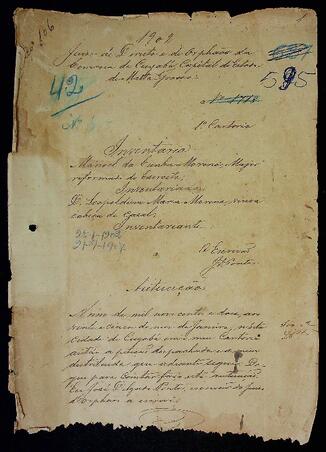 1902
Juizo de Direito e de Orphãos da
Comarca de Cuyabá, Capital do Estado
de Matto Grosso
595
42
Nº
1º Cartorio
Inventario
Manoel da Cunha Moreno, Major
reformado do Exercito,
Inventariado
D. Leopoldina Maria Moreno, viuva
cabeça de casal,
Inventariante
25-1-1902
O Escrivão
Autuação
Anno de mil nove centos e dois, aos
vinte e cinco de mez de Janeiro, nesta
cidade de Cuyabá em meu Cartorio
autúo a petição despachada e
distribuida que adiante segue. Do
que para constar faço esta autuação
Eu José Delgado Ponte, escrivão de
Orphãos a escrevi.